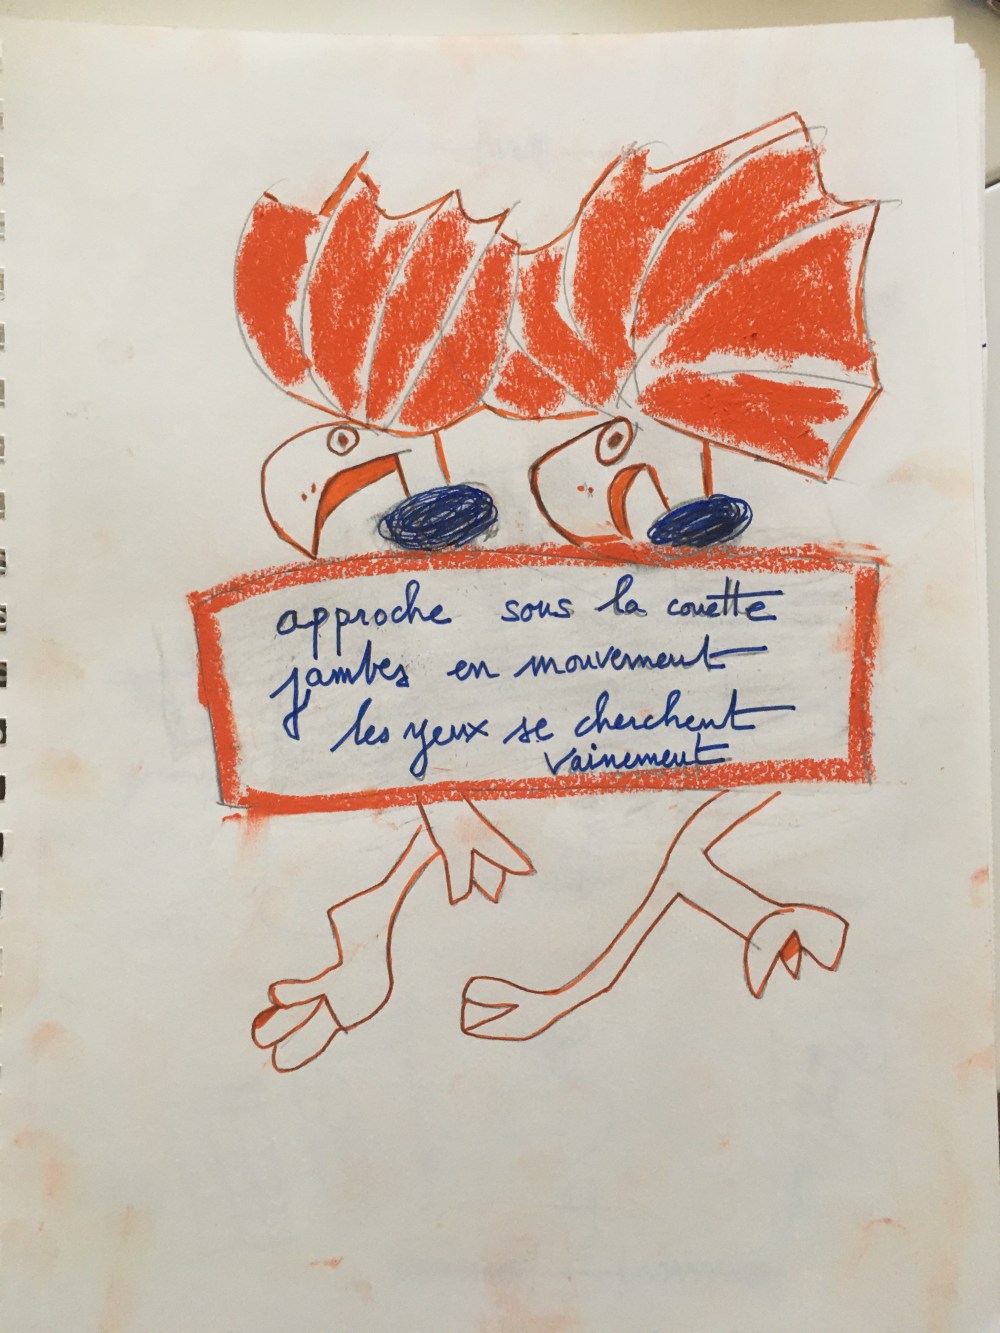 approche sous la couette
jambes en mouvement
les yeux se cherchent
vainement